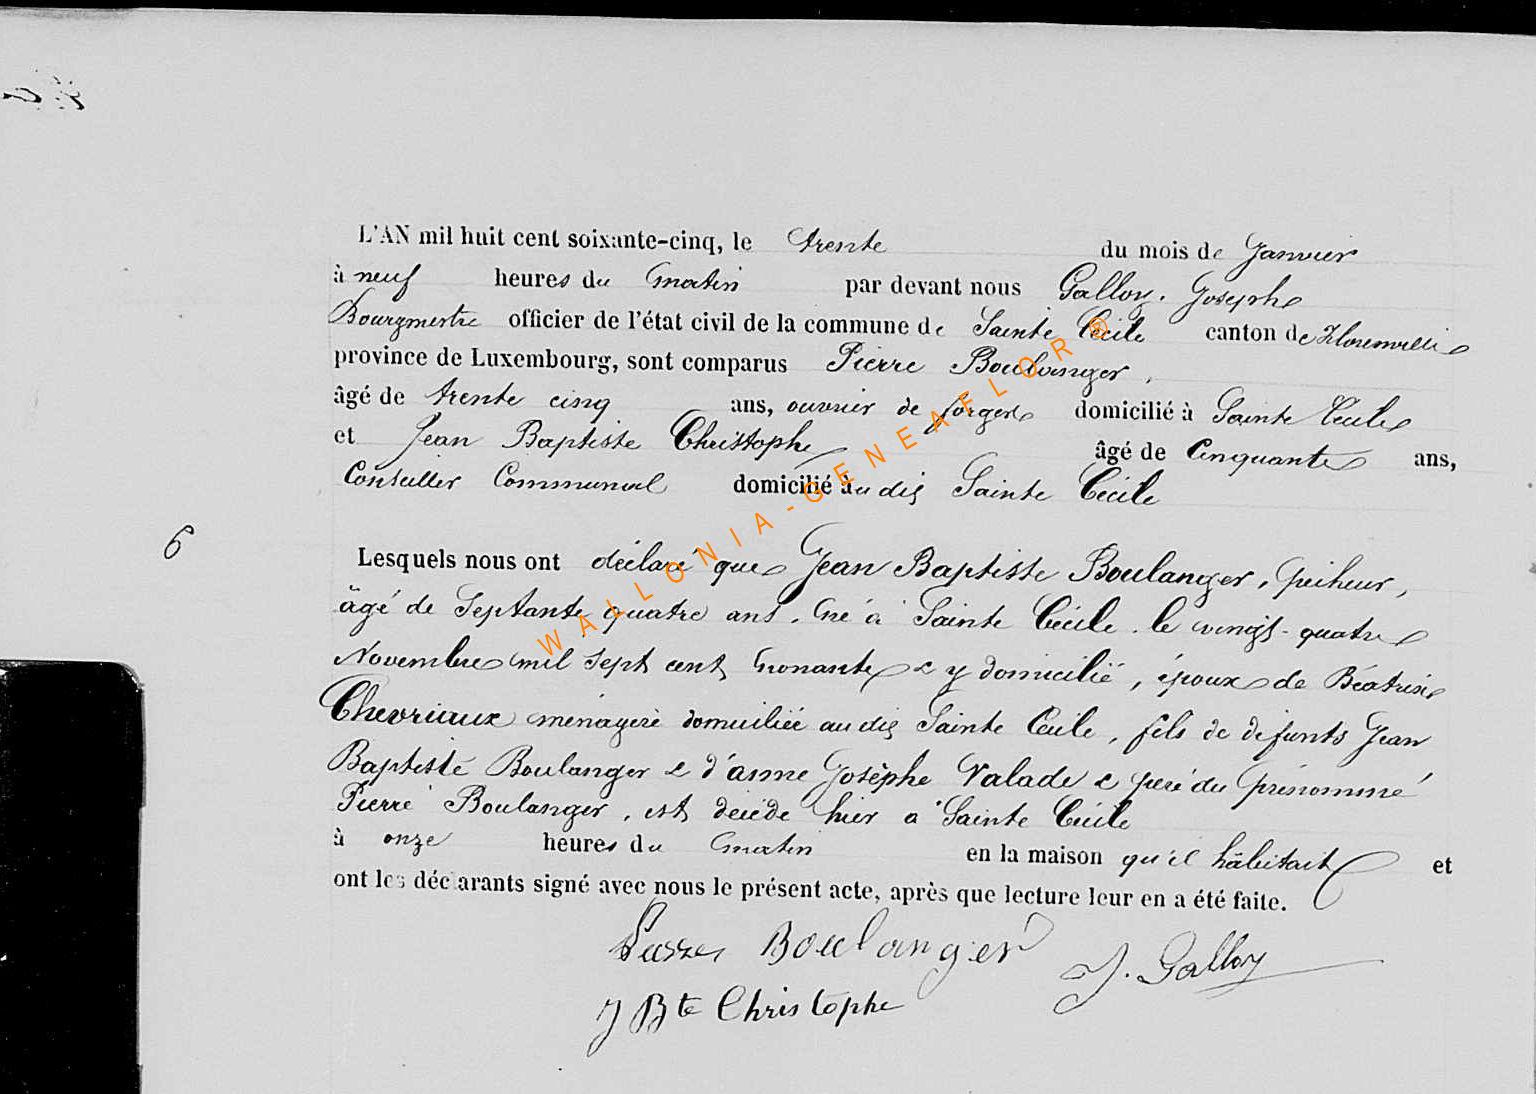 L'AN mil huit cent soixante-cinq, le trente du mois de Janvier
à neuf heures du matin par devant nous Galloy, Josephe
Bourgmestre officier de l'état civil de la commune de Sainte Cécile canton de Florenville
province de Luxembourg, sont comparus Pierre Boulanger,
âgé de trente cinq ans, ouvrier de forges domicilié à Sainte Cécile
et Jean Baptiste Christophe âgé de Cinquante ans,
Conseiller Communal domicilié au dit Sainte Cécile
6
Lesquels nous ont déclaré que Jean Baptiste Boulanger, pêcheur,
âgé de Septante quatre ans, né à Sainte Cécile, le vingt-quatre
Novembre mil sept cent nonante & y domicilié, époux de Béatrix
Chevriaux ménagère domiciliée au dit Sainte Cécile, fils de défunts Jean
Baptiste Boulanger & d'anne Josèphe Valade & père du prénommé
Pierre Boulanger, est décédé hier à Sainte Cécile
à onze heures du matin en la maison qu'il habitait et
ont les déclarants signé avec nous le présent acte, après que lecture leur en a été faite.
Boulanger J. Galloy
J Bte Christophe
WALLONIA-GENEAFLOR®